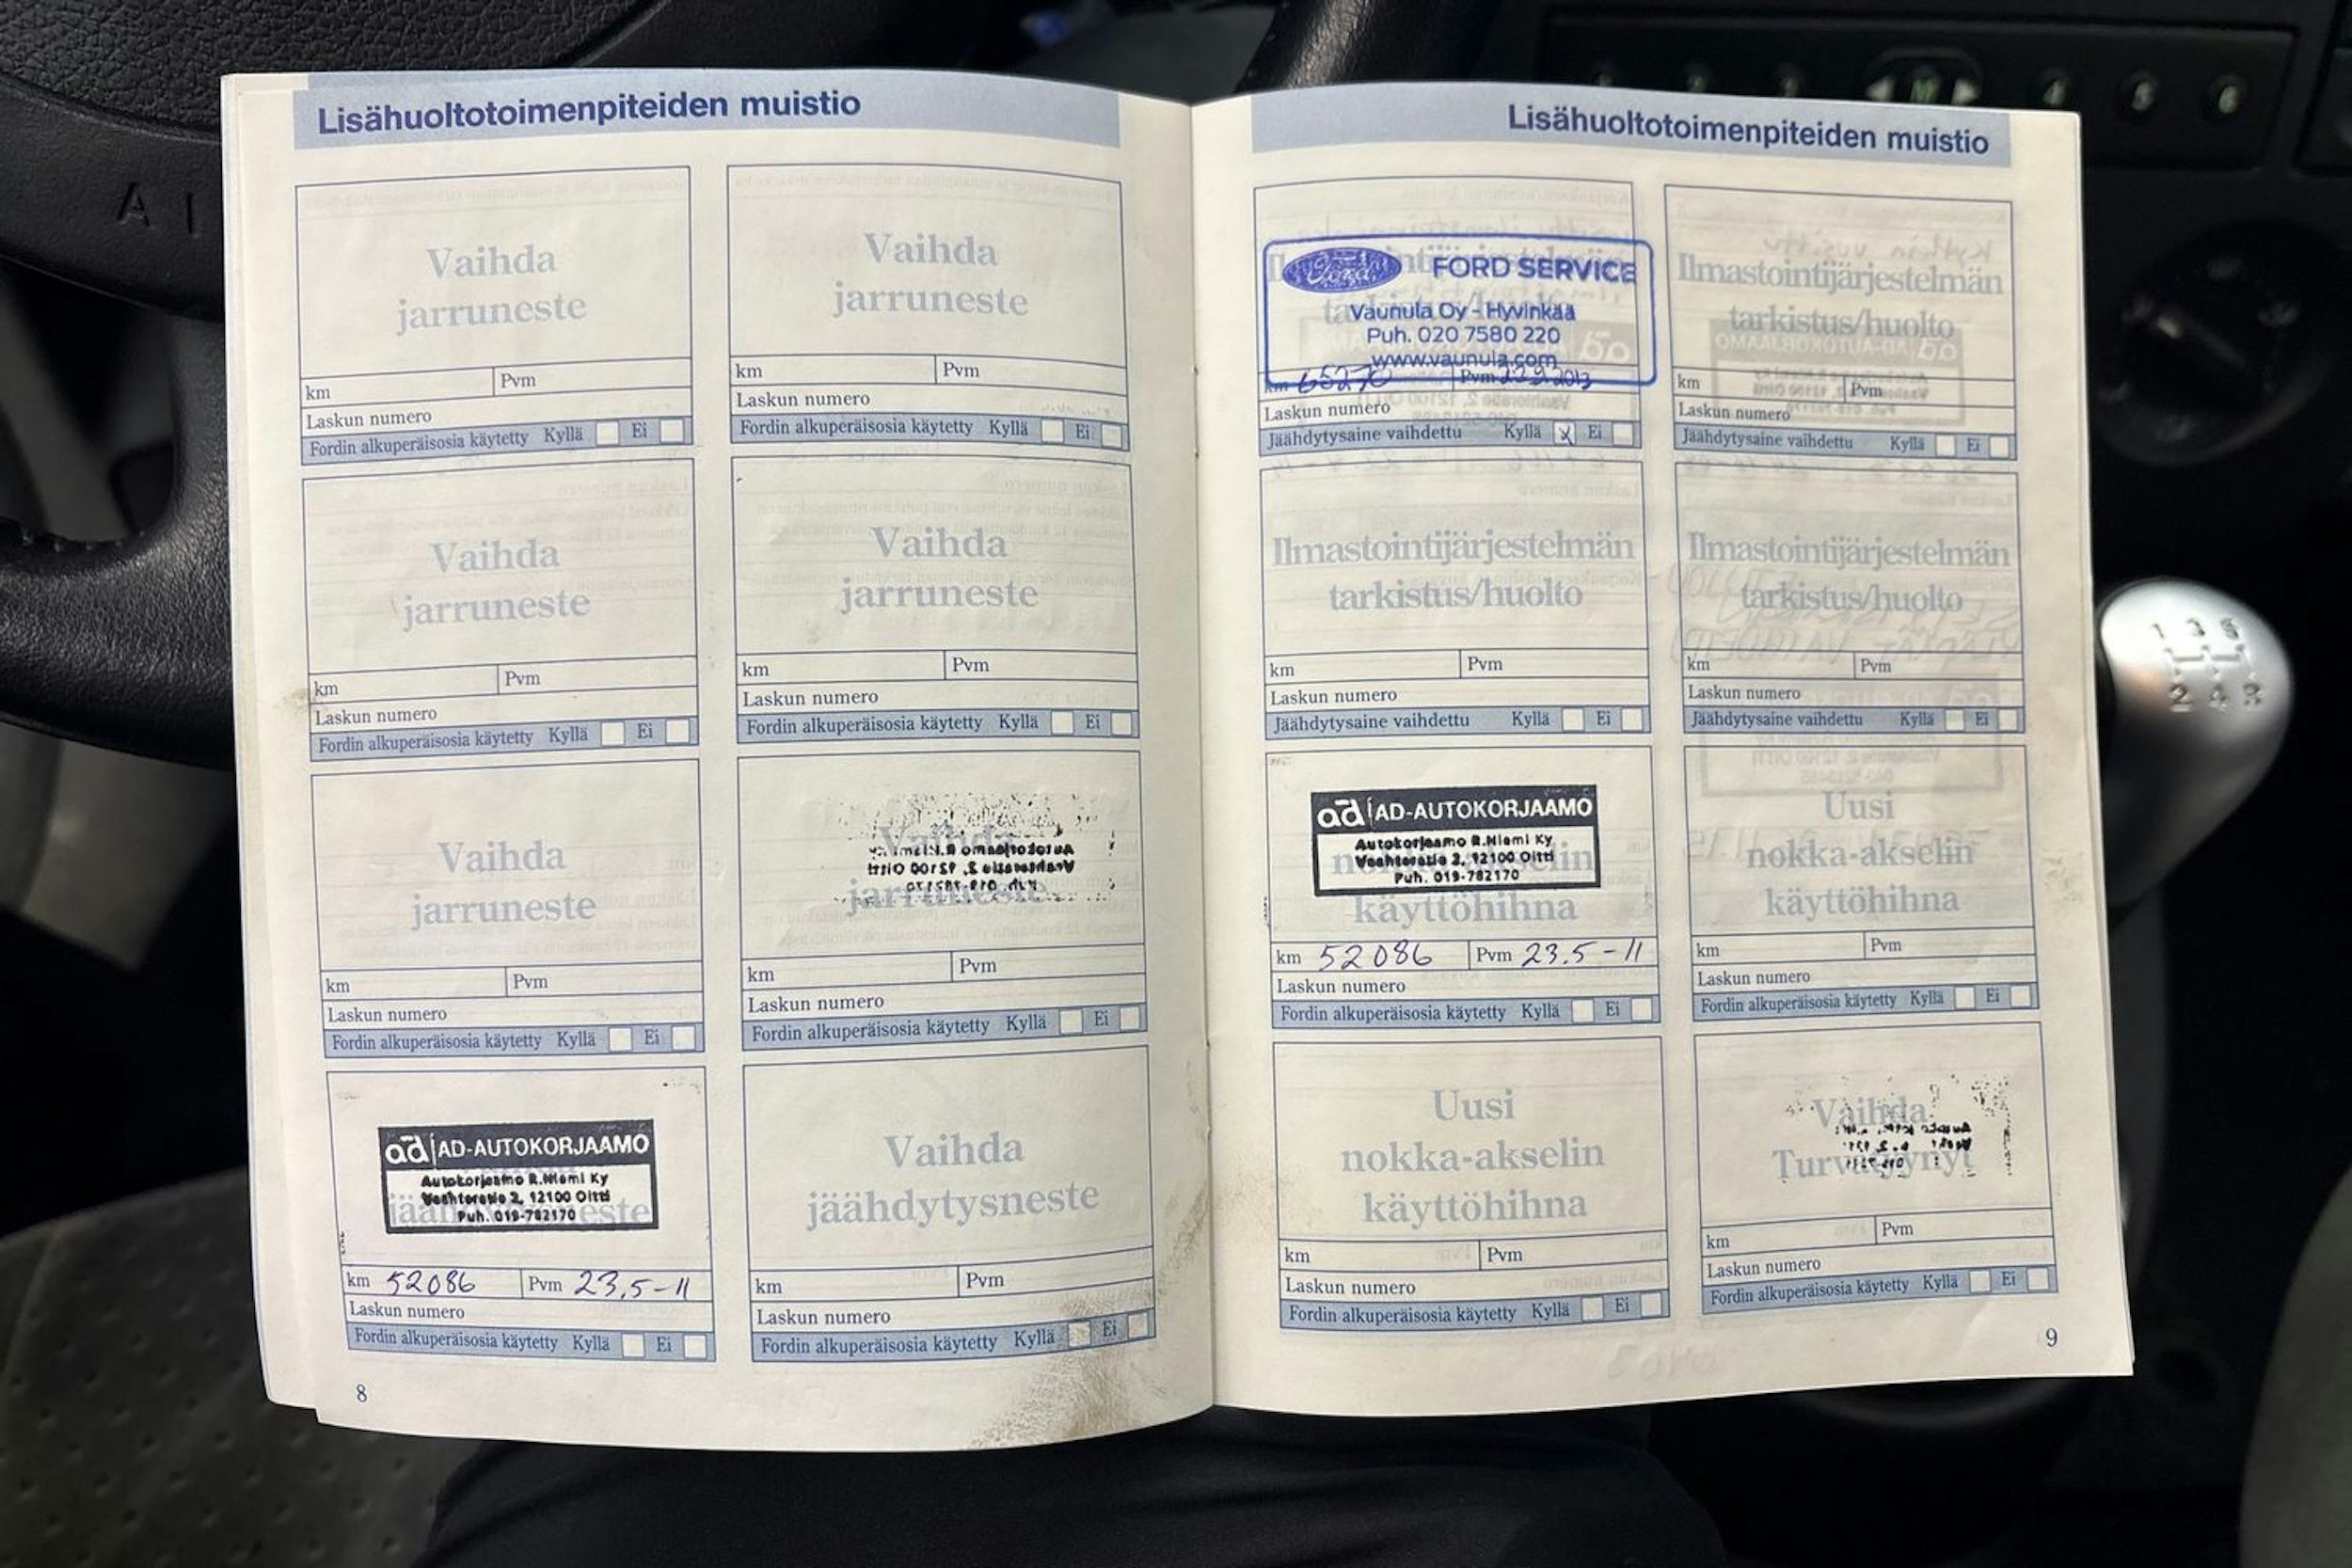 Lisähuoltotoimenpiteiden muistio
Vaihda
jarruneste
km
Pvm
Laskun numero
Fordin alkuperäisosia käytetty Kyllä Ei
Vaihda
jarruneste
km
Pvm
Laskun numero
Fordin alkuperäisosia käytetty Kyllä Ei
Vaihda
jarruneste
km
Pvm
Laskun numero
Fordin alkuperäisosia käytetty Kyllä Ei
Vaihda
jarruneste
km
Pvm
Laskun numero
Fordin alkuperäisosia käytetty Kyllä Ei
Vaihda
jarruneste
km
Pvm
Laskun numero
Fordin alkuperäisosia käytetty Kyllä Ei
Vaihda
jarruneste
km
Pvm
Laskun numero
Fordin alkuperäisosia käytetty Kyllä Ei
ad AD-AUTOKORJAAMO
Autokorjaamo R.Niemi Ky
Vaahteratie 2, 12100 Oitti
Puh. 019-782170
km 52086 Pvm 23.5-11
Laskun numero
Fordin alkuperäisosia käytetty Kyllä Ei
Vaihda
jäähdytysneste
km
Pvm
Laskun numero
Fordin alkuperäisosia käytetty Kyllä Ei
8
Lisähuoltotoimenpiteiden muistio
Ford FORD SERVICE
Vaunula Oy - Hyvinkää
Puh. 020 7580 220
www.vaunula.com
km 65270 Pvm 2013
Laskun numero
Jäähdytysaine vaihdettu Kyllä X Ei
Ilmastointijärjestelmän
tarkistus/huolto
km
Pvm
Laskun numero
Jäähdytysaine vaihdettu Kyllä Ei
Ilmastointijärjestelmän
tarkistus/huolto
km
Pvm
Laskun numero
Jäähdytysaine vaihdettu Kyllä Ei
Ilmastointijärjestelmän
tarkistus/huolto
km
Pvm
Laskun numero
Jäähdytysaine vaihdettu Kyllä Ei
ad AD-AUTOKORJAAMO
Autokorjaamo R.Niemi Ky
Vaahteratie 2, 12100 Oitti
Puh. 019-782170
nokka-akselin
käyttöhihna
km 52086 Pvm 23.5-11
Laskun numero
Fordin alkuperäisosia käytetty Kyllä Ei
Uusi
nokka-akselin
käyttöhihna
km
Pvm
Laskun numero
Fordin alkuperäisosia käytetty Kyllä Ei
Uusi
nokka-akselin
käyttöhihna
km
Pvm
Laskun numero
Fordin alkuperäisosia käytetty Kyllä Ei
Vaihda
Turvatyynyt
km
Pvm
Laskun numero
Fordin alkuperäisosia käytetty Kyllä Ei
9
M 4 5 6
1 3 5
2 4 R